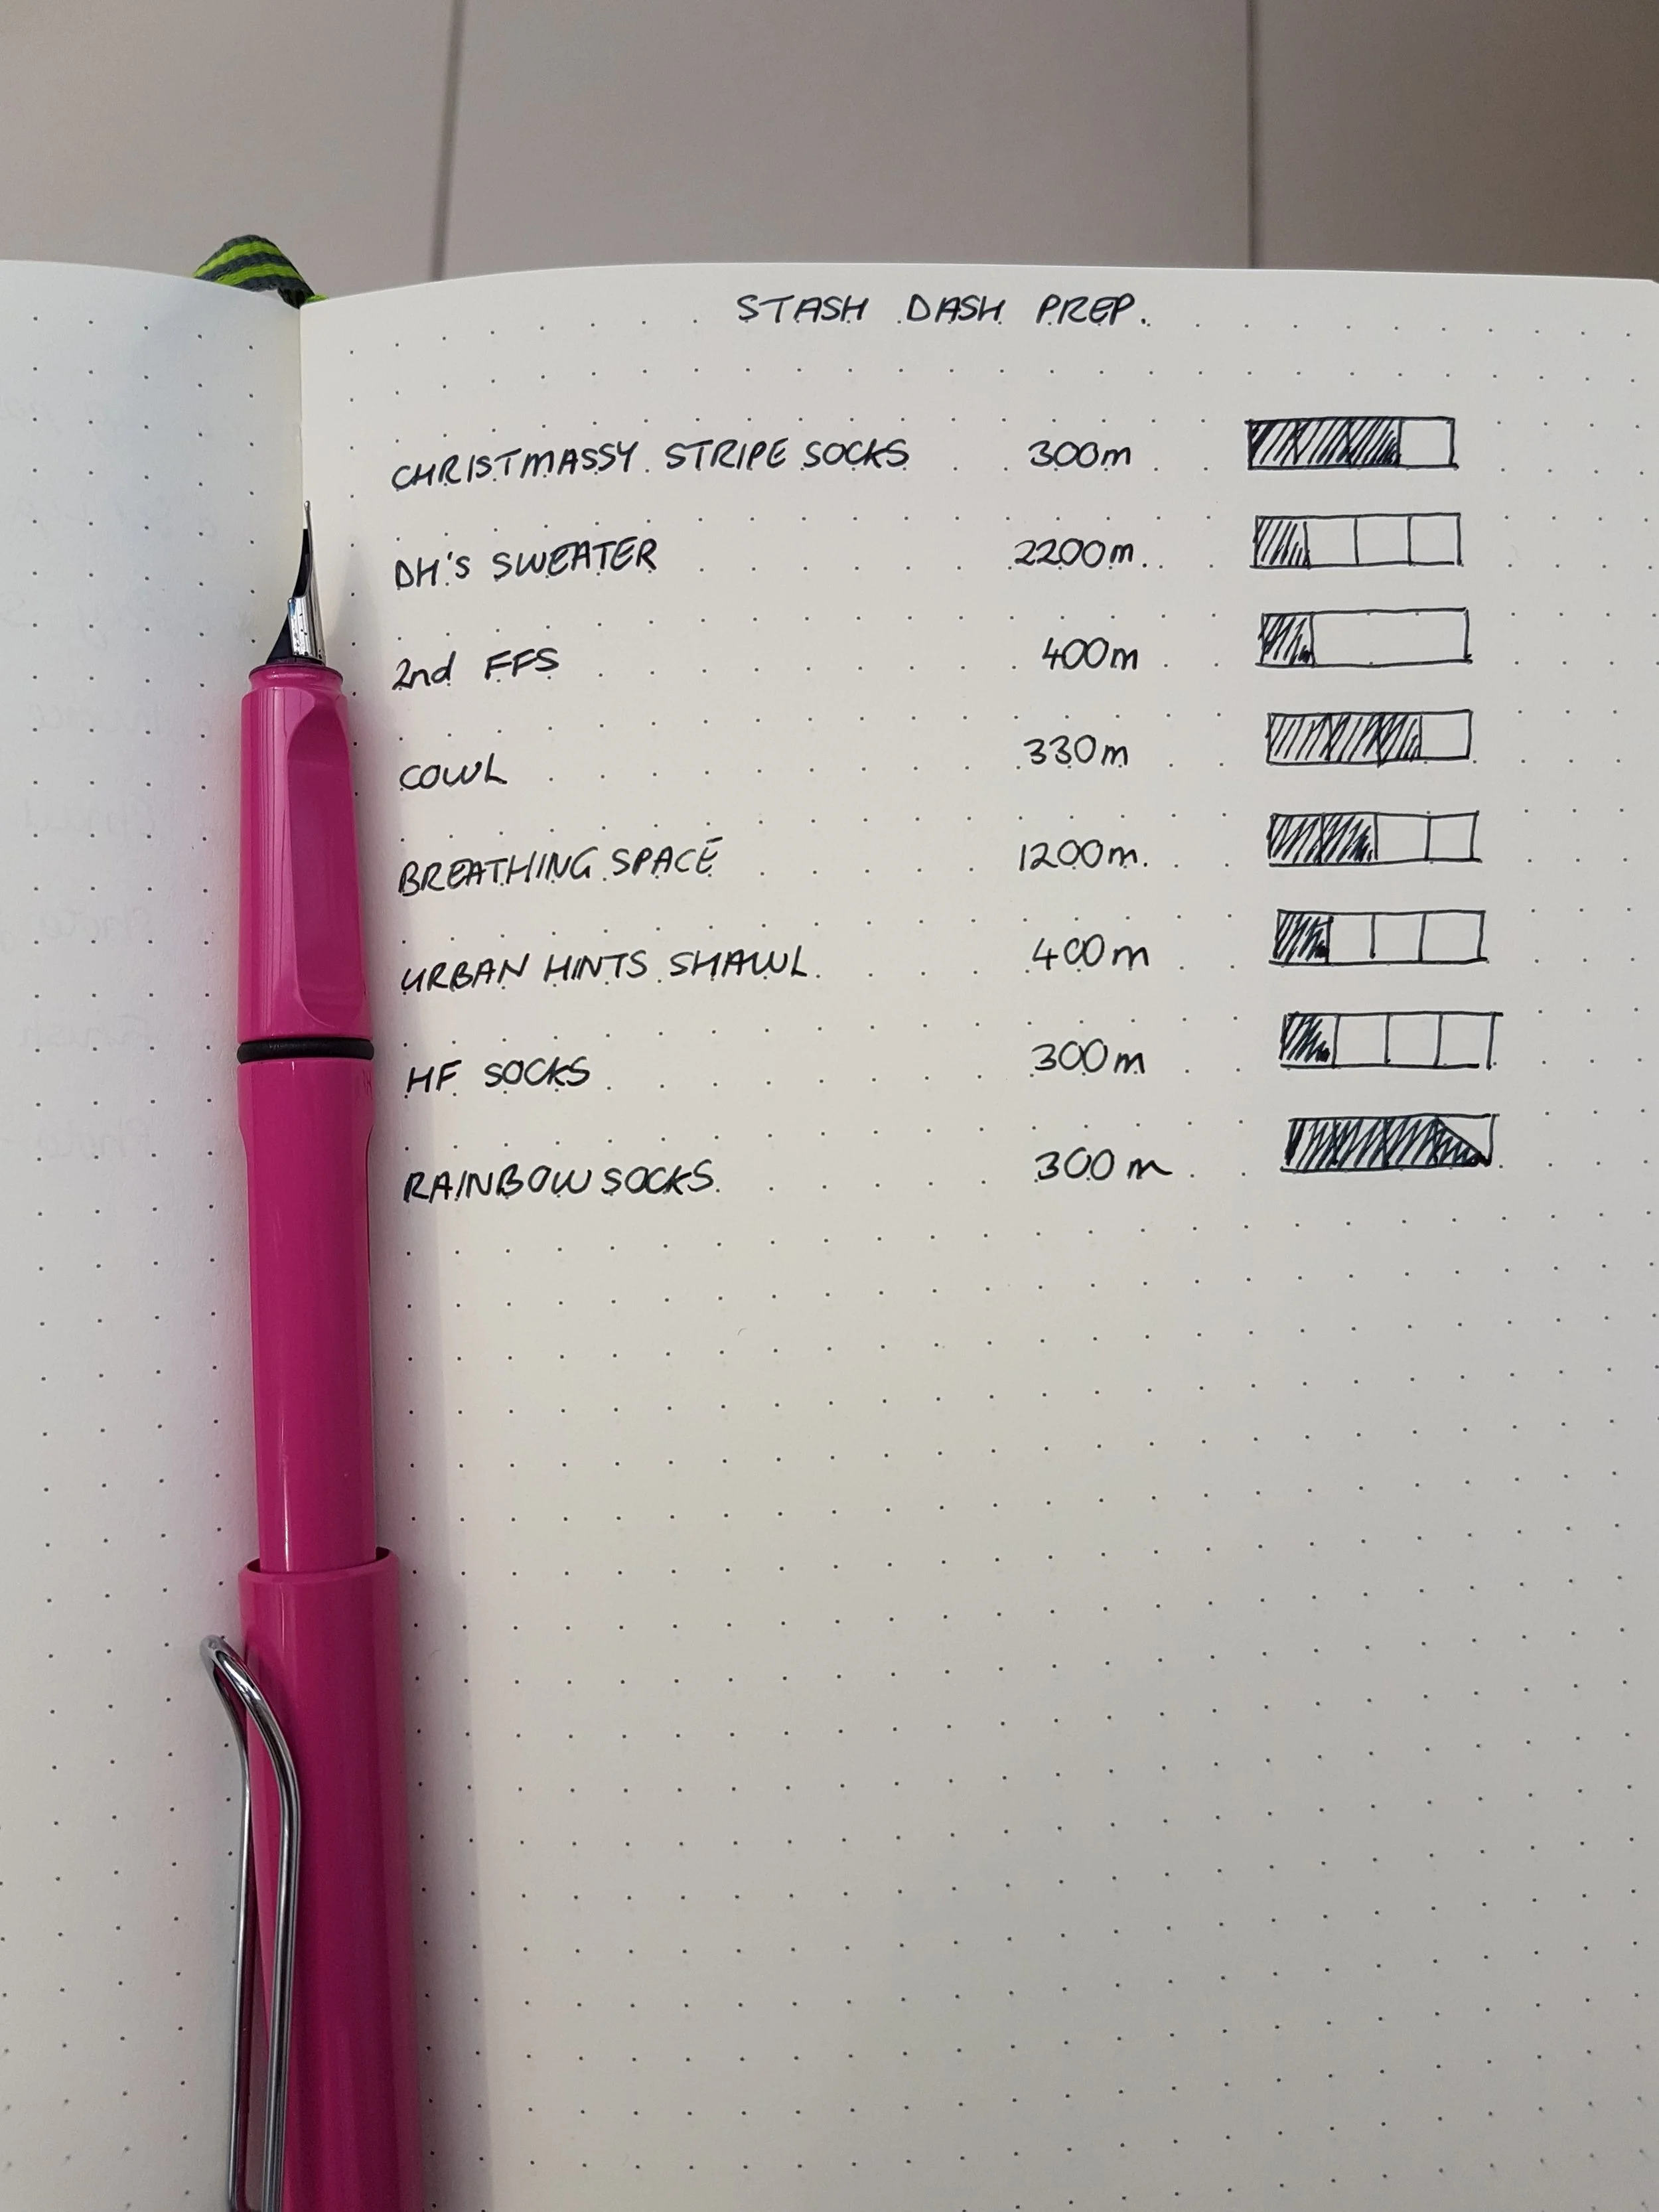 STASH DASH PREP.
CHRISTMASSY STRIPE SOCKS 300m
DH'S SWEATER 2200m
2nd FFS 400m
COWL 330m
BREATHING SPACE 1200m
URBAN HINTS SHAWL 400m
HF SOCKS 300m
RAINBOW SOCKS 300m